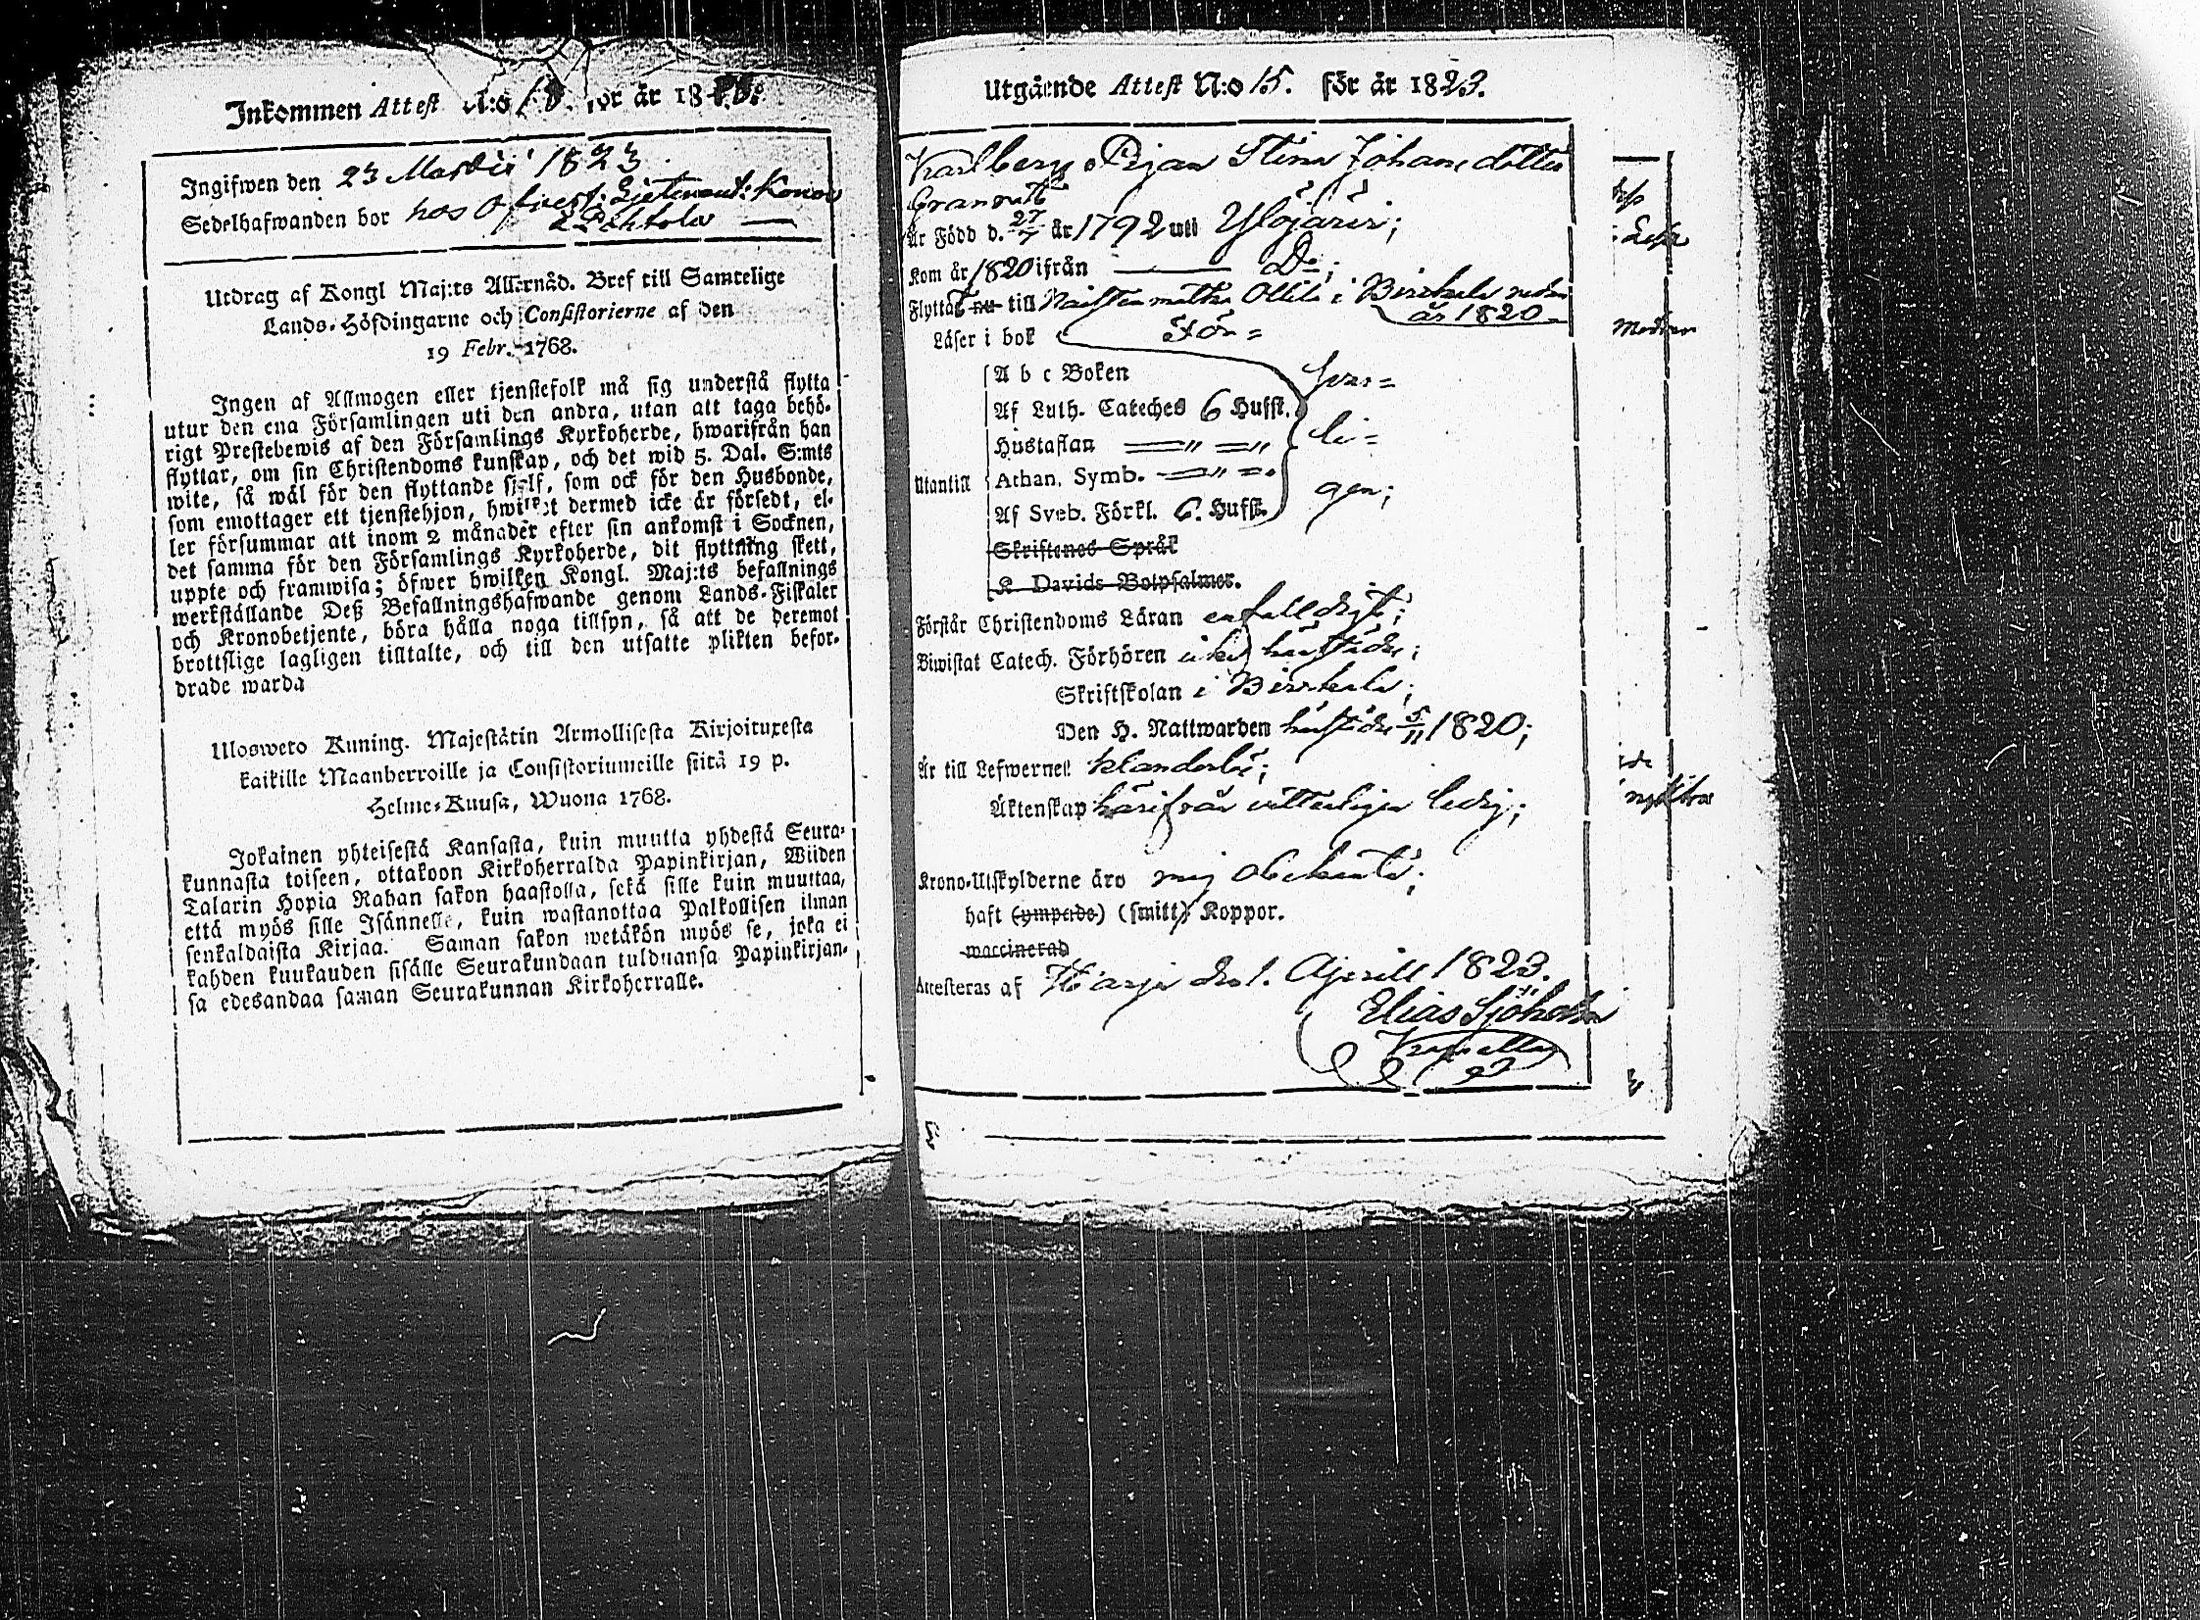 Inkommen Attest N:o 18. för år 18
Ingifwen den 23 Martii 1823.
Sedelhafwanden bor hos Öfverst: Lijetenant:
Utdrag af Kongl Maj:ts Allernåd. Bref till Samtelige
Lands-Höfdingarne och Consistorierne af den
19 Febr. 1768.
Ingen af Allmogen eller tjenstefolk må sig understå flytta
utur den ena Församlingen uti den andra, utan att taga behö-
rigt Prestebewis af den Församlings Kyrkoherde, hwarifrån han
flyttar, om sin Christendoms kunskap, och det wid 5. Dal. S:mts
wite, så wäl för den flyttande sjelf, som ock för den Husbonde,
som emottager ett tjenstehjon, hwilket dermed icke är försedt, el-
ler försummar att inom 2 månader efter sin ankomst i Socknen,
det samma för den Församlings Kyrkoherde, dit flyttning skett,
uppte och framwisa; öfwer hwilken Kongl. Maj:ts befallnings
werkställande Deß Befallningshafwande genom Lands-Fiskaler
och Kronobetjente, böra hålla noga tillsyn, så att de deremot
brottslige lagligen tilltalte, och till den utsatte plikten befor-
drade warda
Ulosweto Kuning. Majestätin Armollisesta Kirjoituxesta
kaikille Maanherroille ja Consistoriumeille siitä 19 p.
Helme-Kuusa, Wuona 1768.
Jokainen yhteisestä Kansasta, kuin muutta yhdestä Seura-
kunnasta toiseen, ottakoon Kirkoherralda Papinkirjan, Wiiden
Talarin Hopia Rahan sakon haastolla, sekä sille kuin muuttaa,
että myös sille Isännelle, kuin wastanottaa Palkollisen ilman
senkaldaista Kirjaa. Saman sakon wetäkön myös se, joka ei
kahden kuukauden sisälle Seurakundaan tulduansa Papinkirjan-
sa edesandaa saman Seurakunnan Kirkoherralle.
Utgående Attest N:o 15. för år 1823.
Karlberg Pigan Stina Johansdotter
Granrott
Är Född d. 27/7 år 1792 uti Ylöjärvi;
Kom år 1820 ifrån —— D:o;
Flyttat nu till Ollila i Birckala redan
år 1820
Läser i bok För=
A b c Boken svar=
Af Luth. Cateches 6 Hufst.
Hustaflan —"— li=
Utantill Athan. Symb. —"—
Af Sveb. Förkl. 6. Hufst. gen;
Skriftenes Språk
K Davids Botpsalmer.
Förstår Christendoms Läran enfalldigt;
Biwistat Catech. Förhören icke härstädes;
Skriftskolan i Birckala;
Den H. Nattwarden härstädes 5/11 1820;
Är till Lefwernet klanderlös;
Äktenskap härifrån vitterligen ledig;
Krono-Utskylderne äro mig obekante;
haft (ympade) (smitt) Koppor.
waccinerad
Attesteras af Harju d. 1. Aprill 1823.
Elias Sjöholm